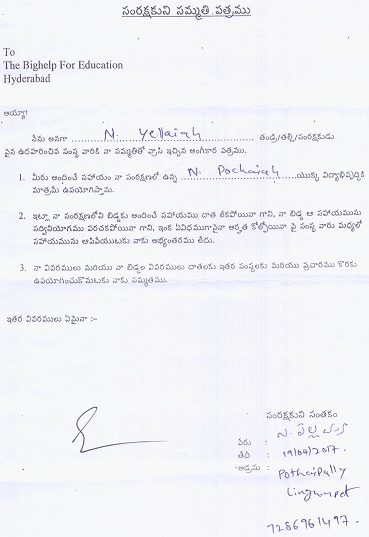 సంరక్షకుని సమ్మతి పత్రము
To
The Bighelp For Education
Hyderabad
అయ్యా!
నేను అనగా N. Yellaiah తండ్రి/తల్లి/సంరక్షకుడు
పైన ఉదహరించిన సంస్థ వారికి నా సమ్మతితో వ్రాసి ఇచ్చిన అంగీకార పత్రము.
1. మీరు అందించే సహాయం నా సంరక్షణలో ఉన్న N. Pochaiah యొక్క విద్యాభివృద్ధికి
మాత్రమే ఉపయోగిస్తాము.
2. ఇట్లా నా సంరక్షణలోని బిడ్డకు అందించే సహాయము దాత లేకపోయినా గాని, నా బిడ్డ ఆ సహాయమును
సద్వినియోగము పరచకపోయినా గాని, ఇంక ఏవిధముగానైనా అర్హత కోల్పోయినా పై సంస్థ వారు మధ్యలో
సహాయమును ఆపివేయుటకు నాకు అభ్యంతరము లేదు.
3. నా వివరములు మరియు నా బిడ్డల వివరములు దాతలకు ఇతర సంస్థలకు మరియు ప్రచారము కొరకు
ఉపయోగించుకొనుటకు నాకు సమ్మతము.
ఇతర వివరములు ఏమైనా :-
సంరక్షకుని సంతకం
పేరు : న. ఎల్లయ్య
తేదీ : 19/04/2017.
అడ్రసు : Pothaipally
Lingampet
7286961497.